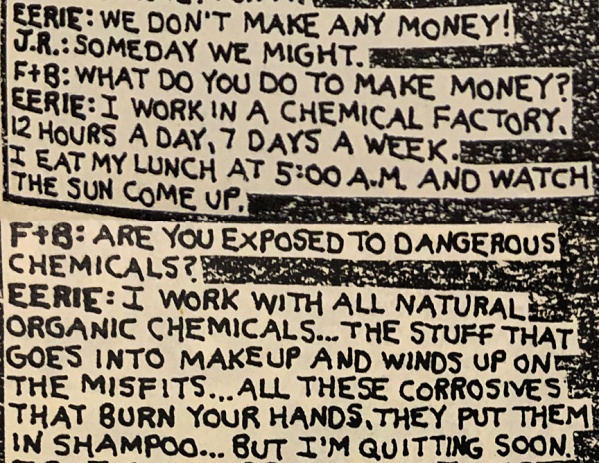 EERIE: WE DON'T MAKE ANY MONEY!
J.R.: SOMEDAY WE MIGHT.
F+B: WHAT DO YOU DO TO MAKE MONEY?
EERIE: I WORK IN A CHEMICAL FACTORY,
12 HOURS A DAY, 7 DAYS A WEEK.
I EAT MY LUNCH AT 5:00 A.M. AND WATCH
THE SUN COME UP.
F+B: ARE YOU EXPOSED TO DANGEROUS
CHEMICALS?
EERIE: I WORK WITH ALL NATURAL
ORGANIC CHEMICALS... THE STUFF THAT
GOES INTO MAKEUP AND WINDS UP ON
THE MISFITS... ALL THESE CORROSIVES
THAT BURN YOUR HANDS, THEY PUT THEM
IN SHAMPOO... BUT I'M QUITTING SOON.